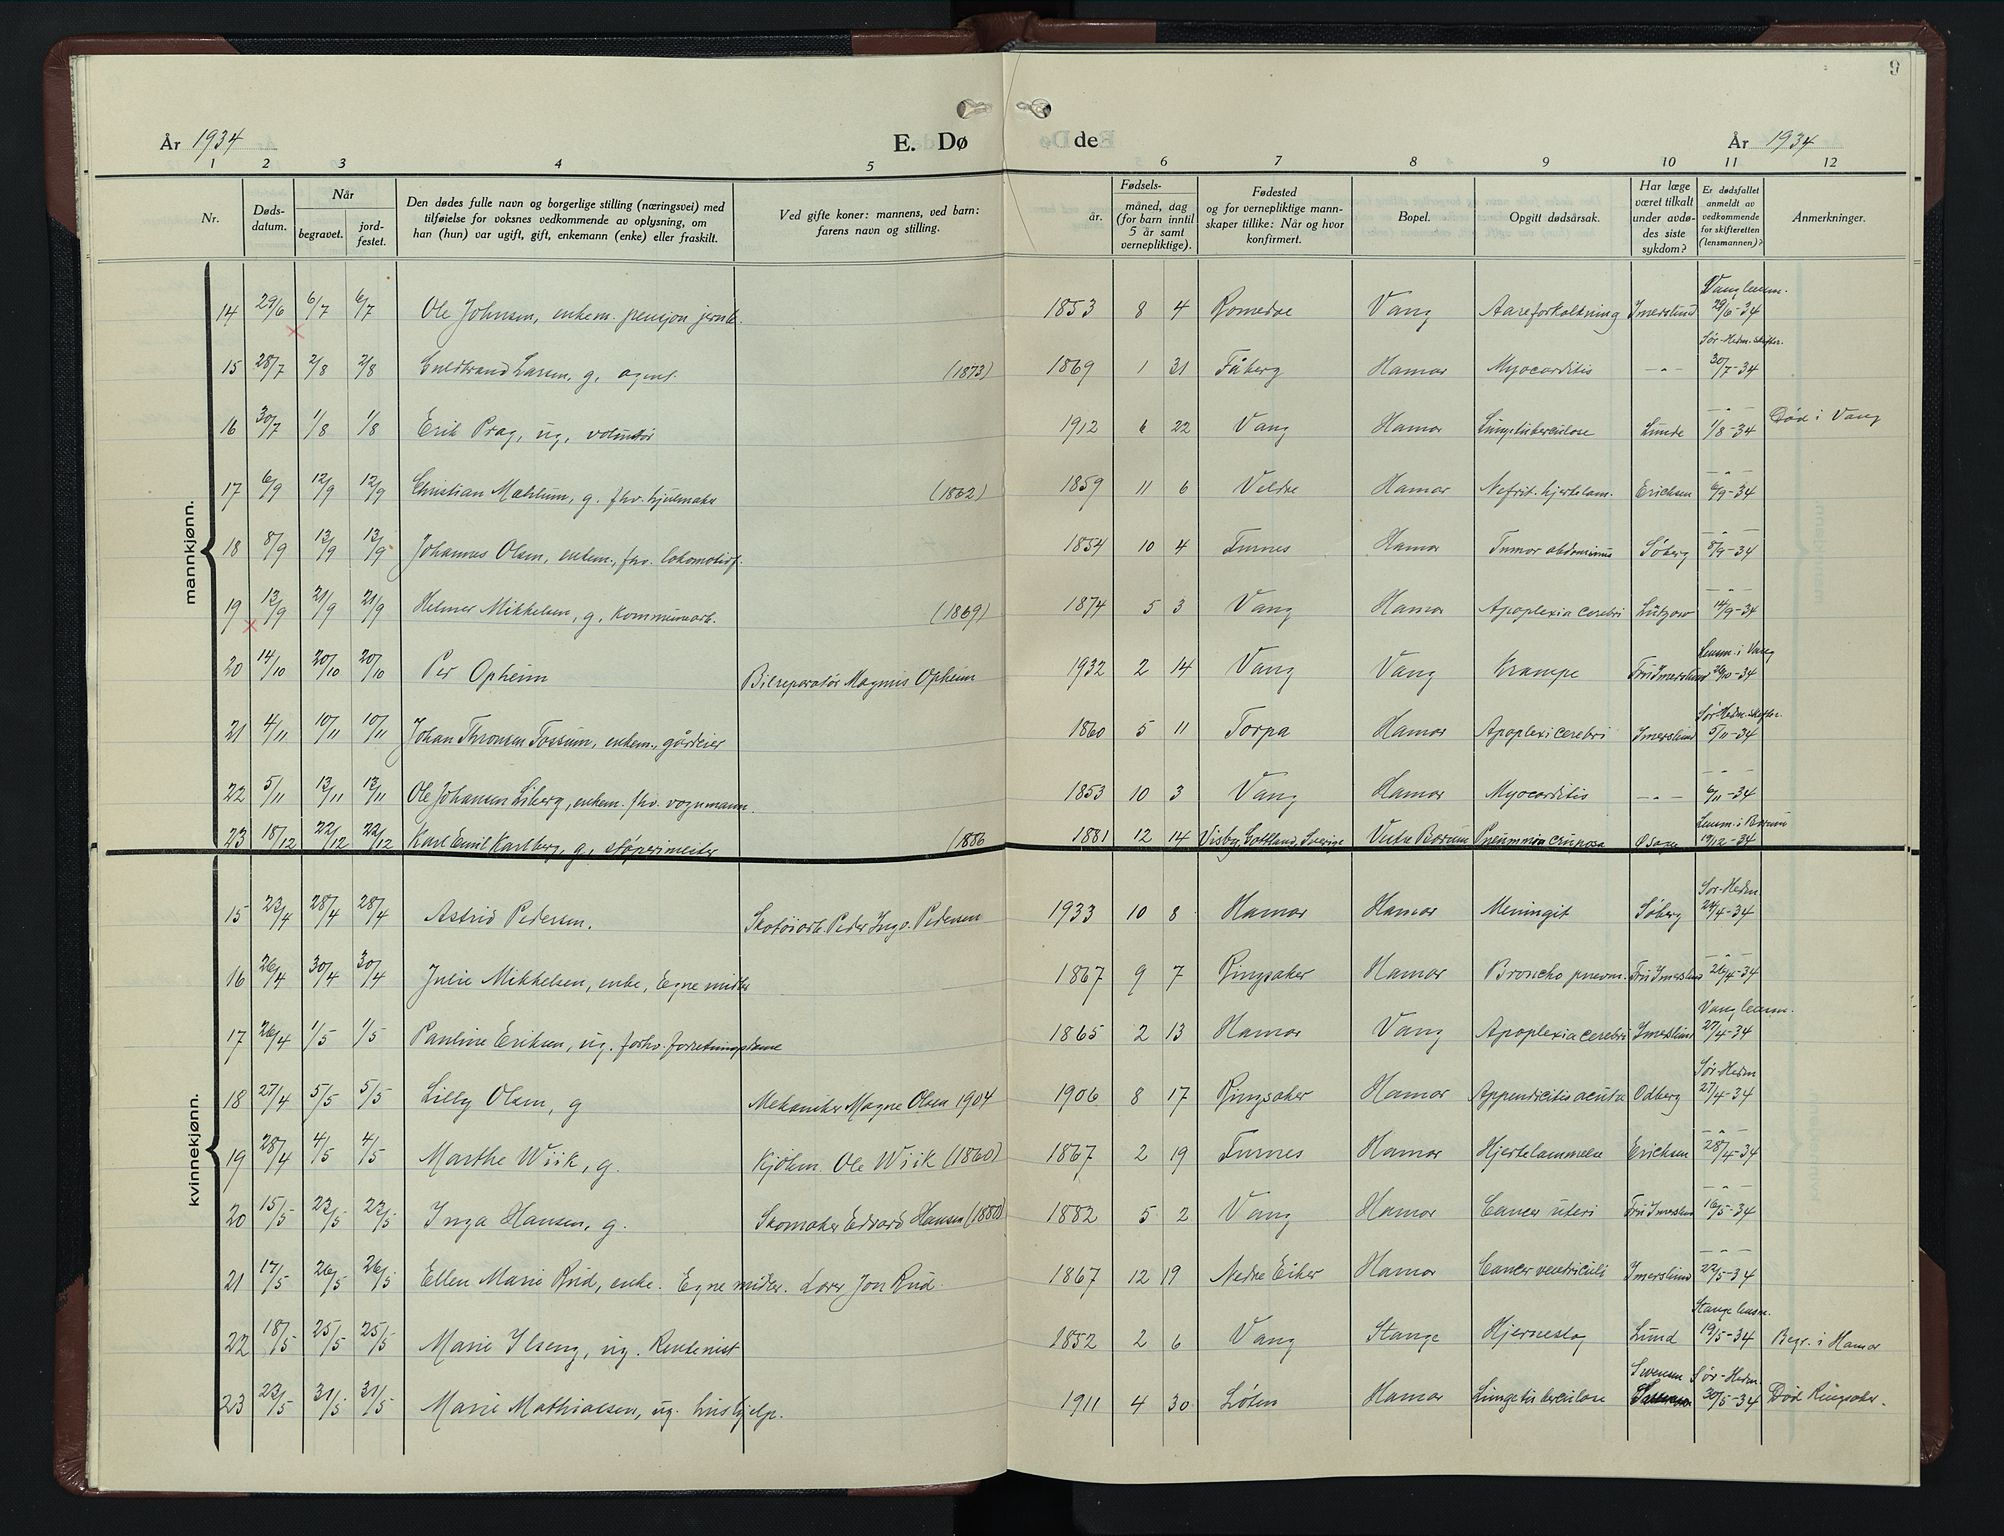 9
År 1934 E. Dø de År 1934
1 2 3 4 5 6 7 8 9 10 11 12
Nr. Døds-datum. Når begravet. jord-festet. Den dødes fulle navn og borgerlige stilling (næringsvei) med tilføielse for voksnes vedkommende av oplysning, om han (hun) var ugift, gift, enkemann (enke) eller fraskilt. Ved gifte koner: mannens, ved barn: farens navn og stilling. Fødsels- år. måned, dag (for barn inntil 5 år samt vernepliktige). Fødested og for vernepliktige mannskaper tillike: Når og hvor konfirmert. Bopel. Opgitt dødsårsak. Har læge været tilkalt under avdødes siste sykdom? Er dødsfallet anmeldt av vedkommende for skifteretten (lensmannen)? Anmerkninger.
mannkjønn.
14 29/6 6/7 6/7 Ole Johnsen, enkem. pensjon jernb. 1853 8 4 Romedae Vang Aareforkalkning Imerslund Vang lensm. 29/6-34
15 28/7 2/8 2/8 Guldbrand Larsen, g, agent. (1873) 1869 1 31 Fåberg Hamar Myocarditis -"- Sør-Hedm. skifter. 30/7-34
16 30/7 1/8 1/8 Erik Prag, ug, volontør 1912 6 22 Vang Hamar Lungetuberculose Lunde -"- 1/8-34 Død i Vang
17 6/9 12/9 12/9 Christian Mæhlum, g. fhv. hjulmaker (1862) 1859 11 6 Veldre Hamar Nefrit. hjertelam. Erichsen -"- 6/9-34
18 8/9 13/9 13/9 Johannes Olsen, enkem., fhv. lokomotivf. 1854 10 4 Furnes Hamar Tumor abdominis Søberg -"- 8/9-34
19 13/9 21/9 21/9 Helmer Mikkelsen, g, kommunearb. (1869) 1874 5 3 Vang Hamar Apoplexia cerebri Lützow -"- 14/9-34
20 14/10 20/10 20/10 Per Opheim Bilreparatør Magnus Opheim 1932 2 14 Vang Vang Krampe Fru Imerslund Lensm. i Vang 16/10-34
21 4/11 10/11 10/11 Johan Thronsen Fossum, enkem., gårdeier 1860 5 11 Torpa Hamar Apoplexi cerebri Imerslund Sør Hedm. skifter. 5/11-34
22 5/11 13/11 13/11 Ole Johansen Liberg, enkem. fhv. vognmann 1853 10 3 Vang Hamar Myocarditis -"- -"- 6/11-34
23 18/12 22/12 22/12 Karl Emil Karlberg, g, støperimester (1886 1881 12 14 Visby, Gottland, Sverige Vestre Bærum Pneumonia cruposa Lensm. i Bærum 19/12-34
kvinnekjønn.
15 23/4 28/4 28/4 Astrid Pedersen. Skotøiarb. Peder Ingv. Pedersen 1933 10 8 Hamar Hamar Meningit Søberg Sør-Hedm 24/4-34
16 26/4 30/4 30/4 Julie Mikkelsen, enke, Egne midler 1867 9 7 Ringsaker Hamar Broncho pneum. Fru Imerslund -"- 26/4-34
17 26/4 1/5 1/5 Pauline Eriksen, ug. forhv. forretningsdame 1865 2 13 Hamar Vang Apoplexia cerebri Imerslund Vang lensm. 27/4-34
18 27/4 5/5 5/5 Lilly Olsen, g Mekaniker Magne Olsen 1904 1906 8 17 Ringsaker Hamar Appendicitis acuta Odberg Sør-Hedm 27/4-34
19 28/4 4/5 4/5 Marthe Wiik, g. Kjøbm. Ole Wiik (1860) 1867 2 19 Furnes Hamar Hjertelammelse Erichsen -"- 28/4-34
20 15/5 22/5 22/5 Inga Hansen, g. Skomaker Edvard Hansen (1880) 1882 5 2 Vang Hamar Cancer uteri Fru Imerslund -"- 16/5-34
21 17/5 26/5 26/5 Ellen Marie Rud, enke. Egne midler. Lærer Jon Rud. 1867 12 19 Nedre Eiker Hamar Cancer ventriculi Imerslund -"- 22/5-34
22 18/5 25/5 25/5 Marie Ilseng, ug. Rentenist 1852 2 6 Vang Stange Hjerneslag Lund Stange lensm. 19/5-34 Begr. i Hamar
23 23/5 31/5 31/5 Marie Mathiassen, ug. hushjelp. 1911 4 30 Løten Hamar Lungetuberculose Svensen Sør-Hedm 30/5-34 Død Ringsaker.